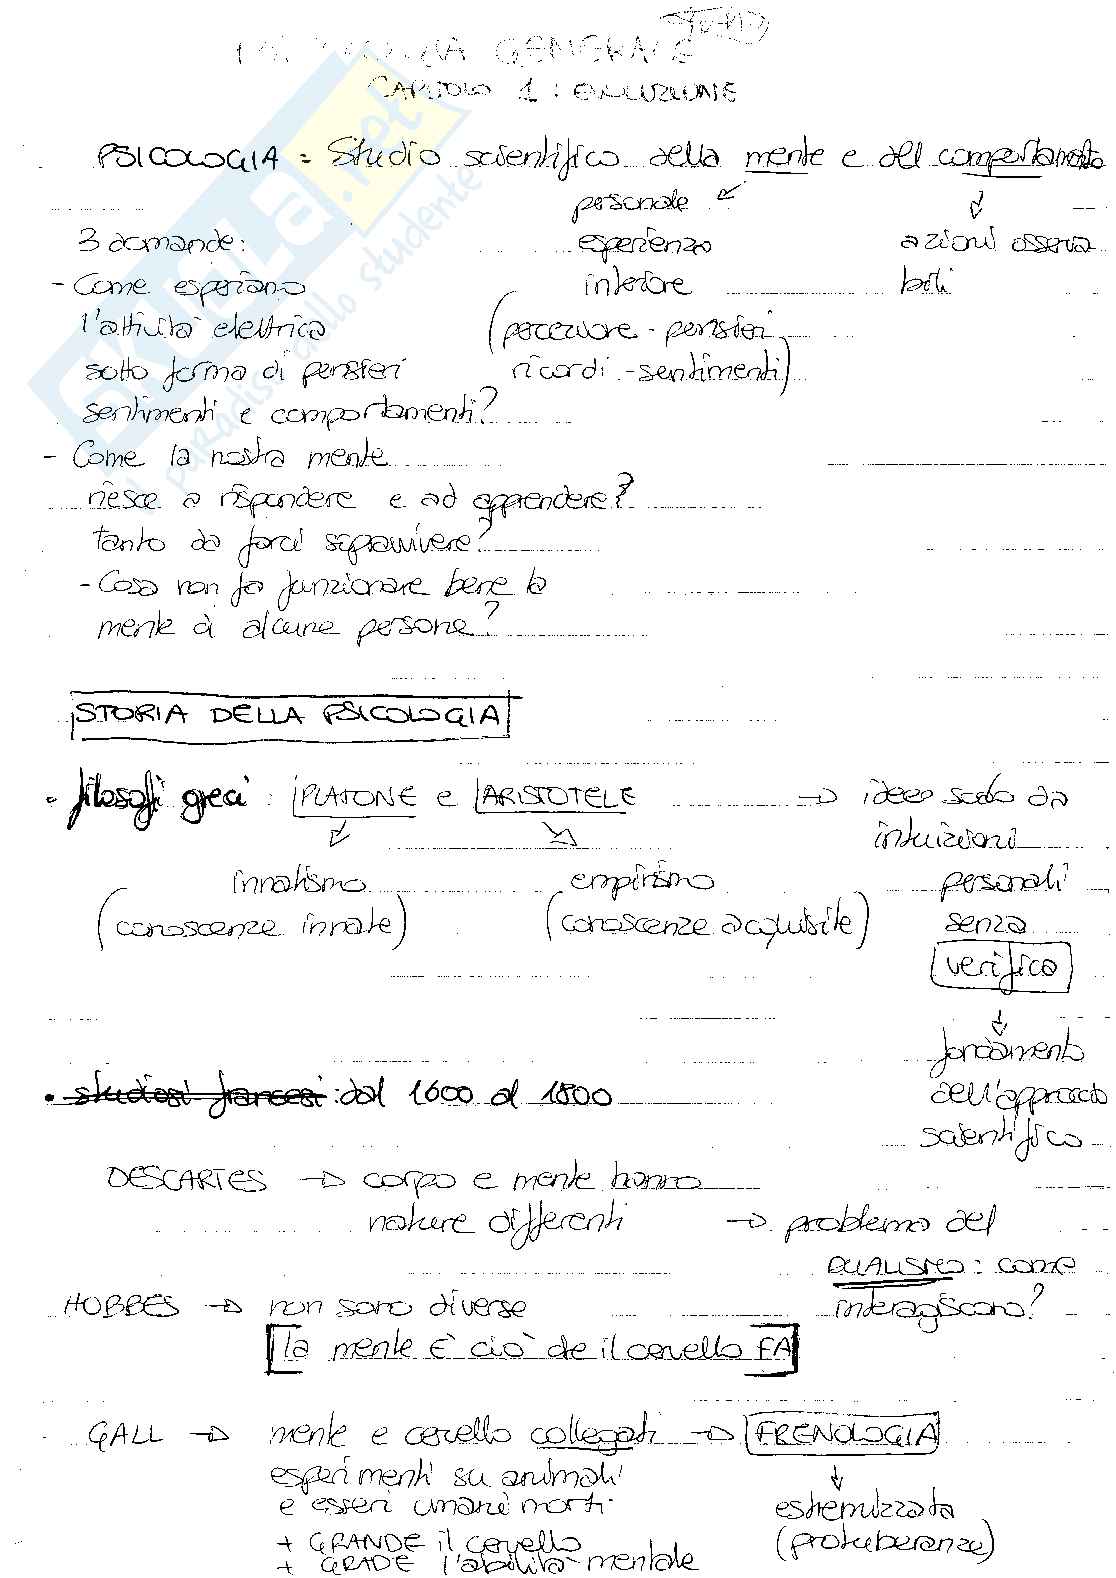 GENERALE
CAPITOLO 1 : EVOLUZIONE
PSICOLOGIA = Studio scientifico della mente e del comportamento
personale
3 domande: esperienza azioni osserva
- Come esperiamo interiore bili
l'attività elettrica (percezione - pensieri
sotto forma di pensieri ricordi - sentimenti)
sentimenti e comportamenti?
- Come la nostra mente
riesce a rispondere e ad apprendere?
tanto da farci sopravvivere?
- Cosa non fa funzionare bene la
mente di alcune persone?
STORIA DELLA PSICOLOGIA
• filosofi greci : PLATONE e ARISTOTELE → idee solo da
intuizioni
innatismo empirismo personali
(conoscenze innate) (conoscenze acquisite) senza
verifica
fondamento
• studiosi francesi : dal 1600 al 1800 dell'approccio
scientifico
DESCARTES → corpo e mente hanno
nature differenti → problema del
DUALISMO : come
HOBBES → non sono diverse interagiscono?
[la mente È ciò che il cervello FA]
GALL → mente e cervello collegati → FRENOLOGIA
esperimenti su animali
e esseri umani morti estremizzata
+ GRANDE il cervello (protuberanze)
+ GRADE l'abilità mentale
skuola.net
paradiso dello studente